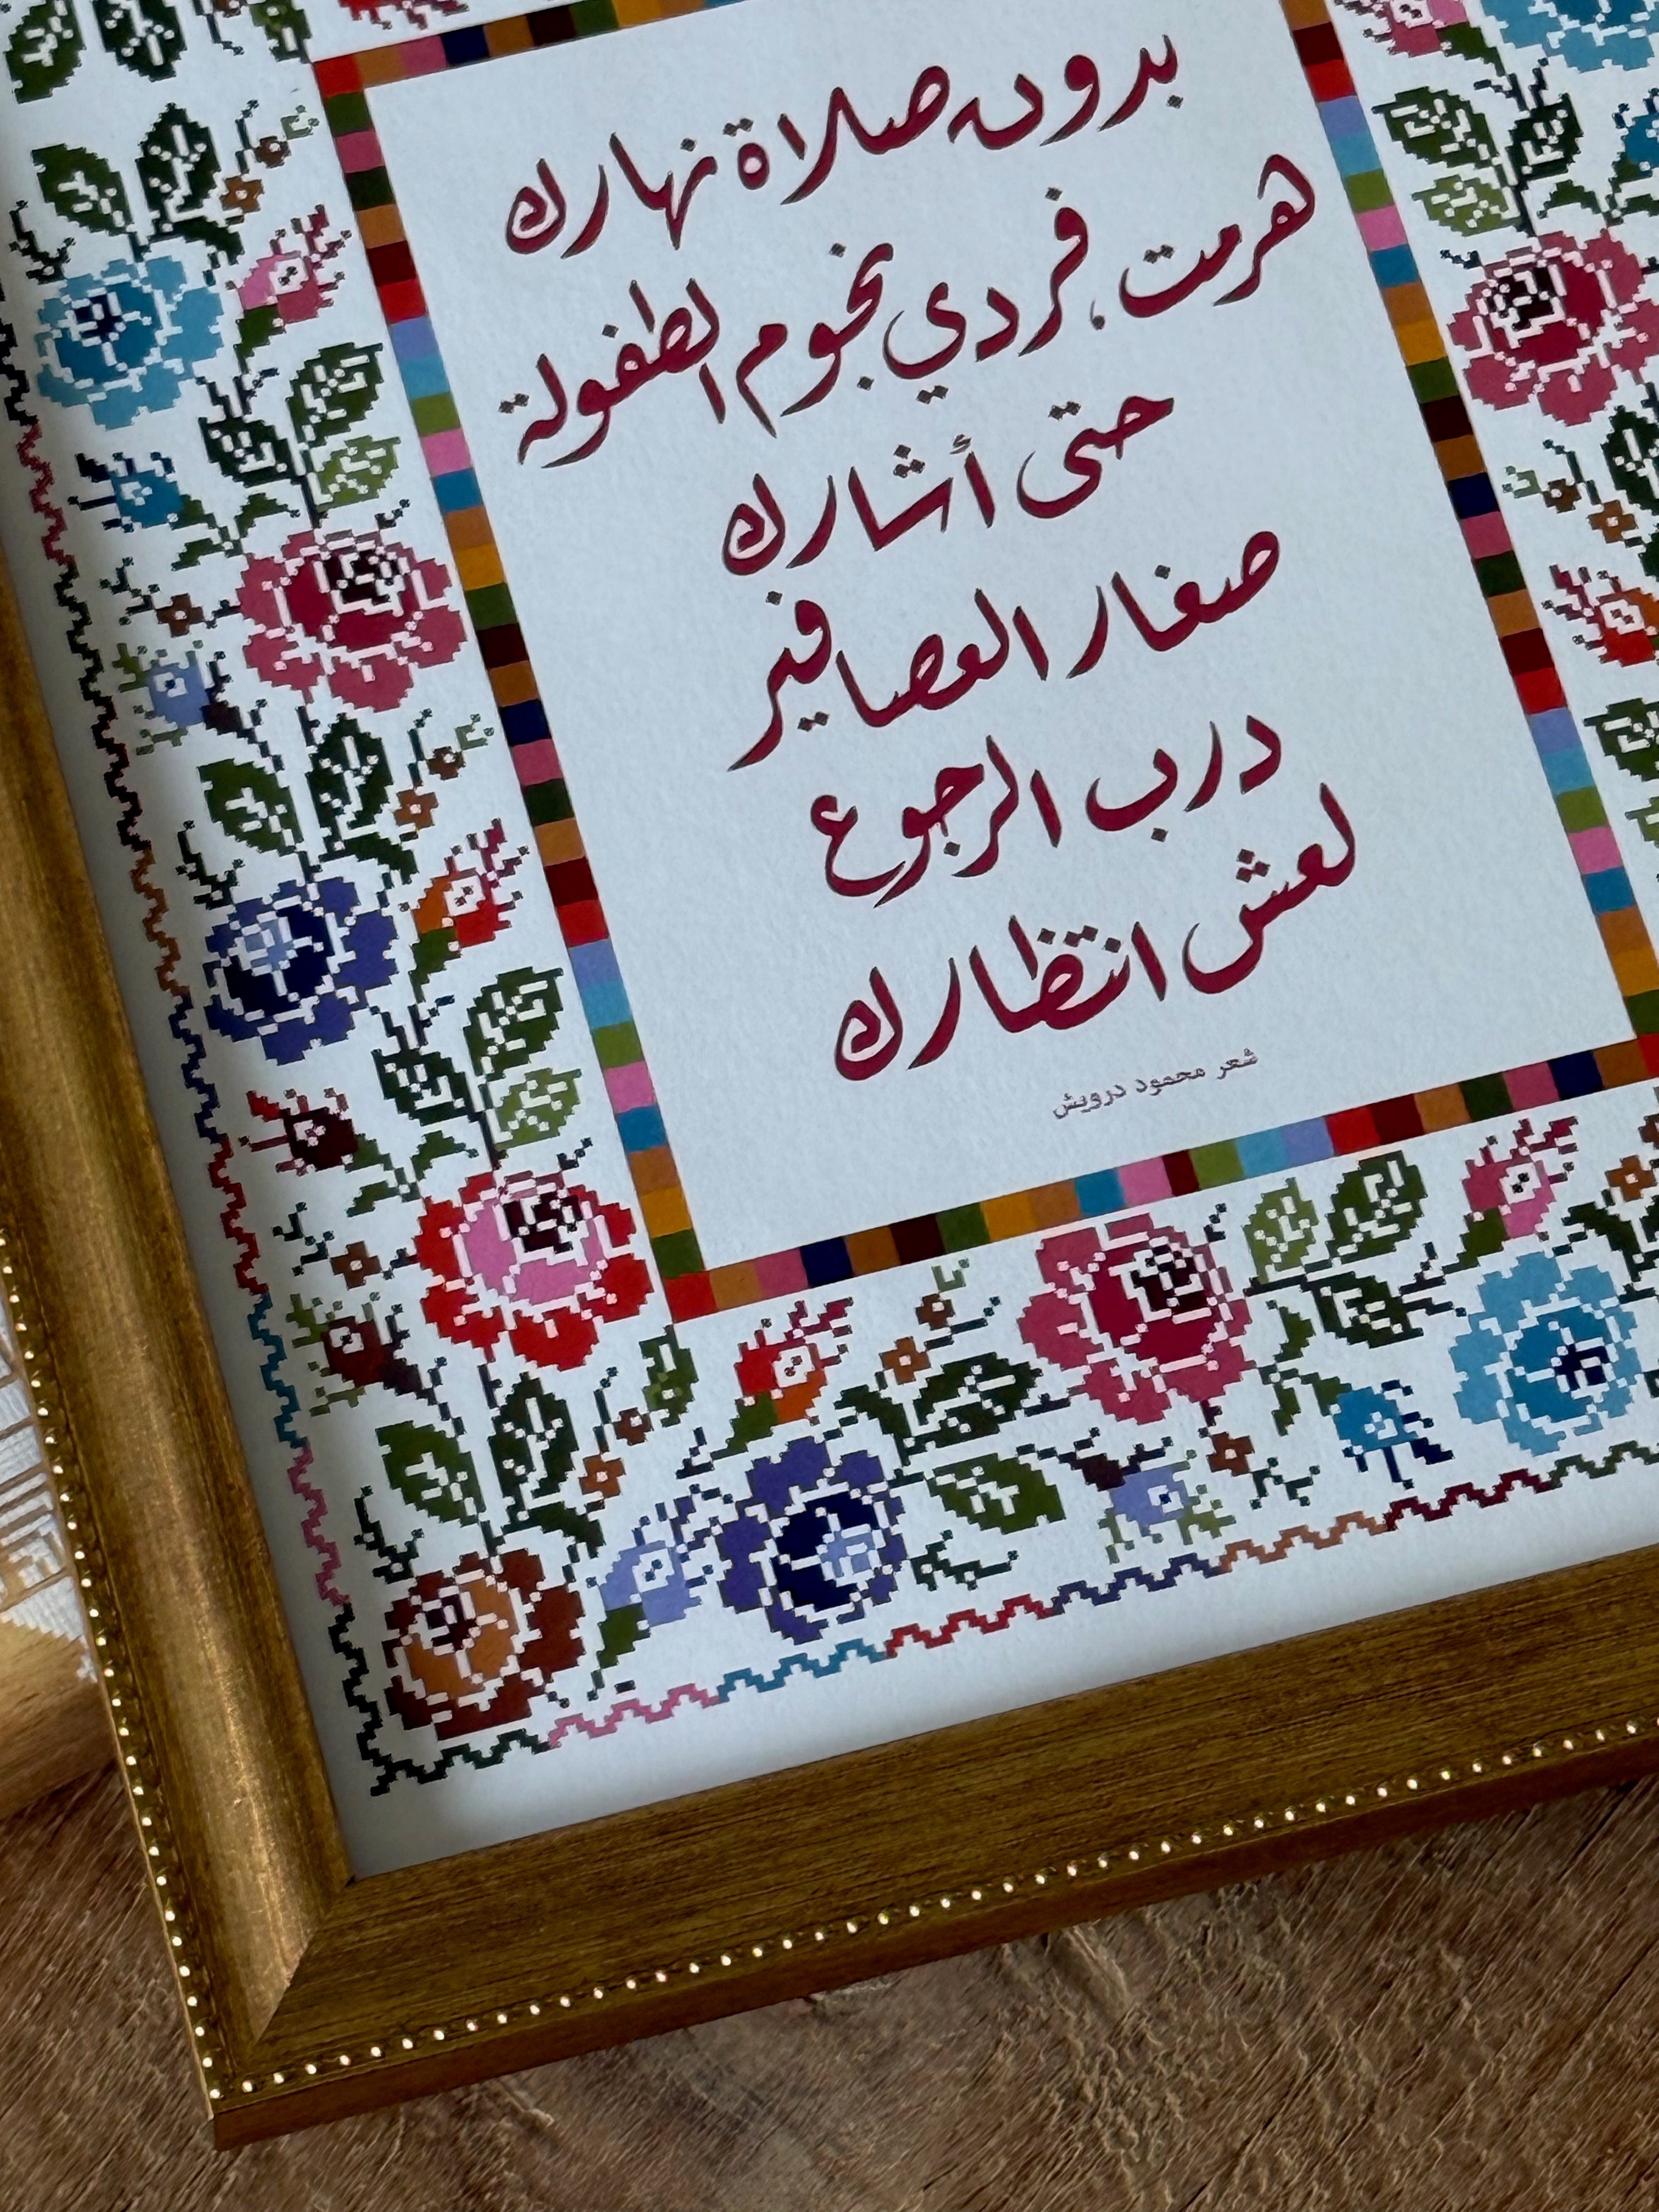 بدون صلاة نهارك
هرمت، فردي نجوم الطفولة
حتى أشارك
صغار العصافير
درب الرجوع
لعش انتظارك
شعر محمود درويش